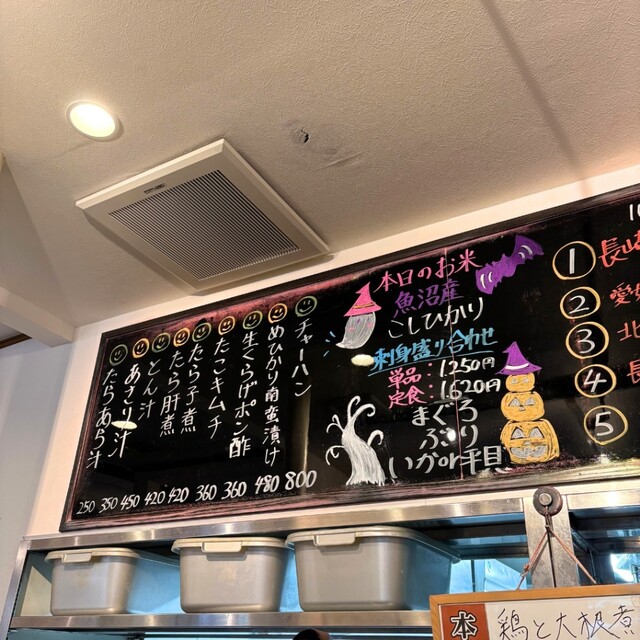 チャーハン 800
めひかり南蛮漬け 480
生くらげポン酢 360
たこキムチ 360
たら子煮 420
たら肝煮 420
とん汁 450
あさり汁 350
たらあら汁 250
本日のお米
魚沼産
こしひかり
刺身盛り合わせ
単品：1,250円
定食：1,620円
まぐろ
ぶり
いかor平貝
① 長崎
②
③ 北
④ 長
⑤
本
鶏と大根煮